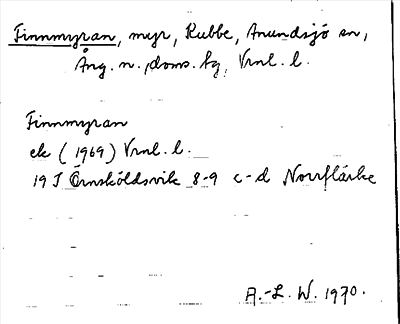 Finnmyran, myr, Kubbe, Anundsjö sn,
Ång. n. doms. bg, Vrnl. l.
Finnmyran
ek (1969) Vrnl. l.
19 J Örnsköldsvik 8-9 c-d Norrflärke
A.-L. W. 1970.